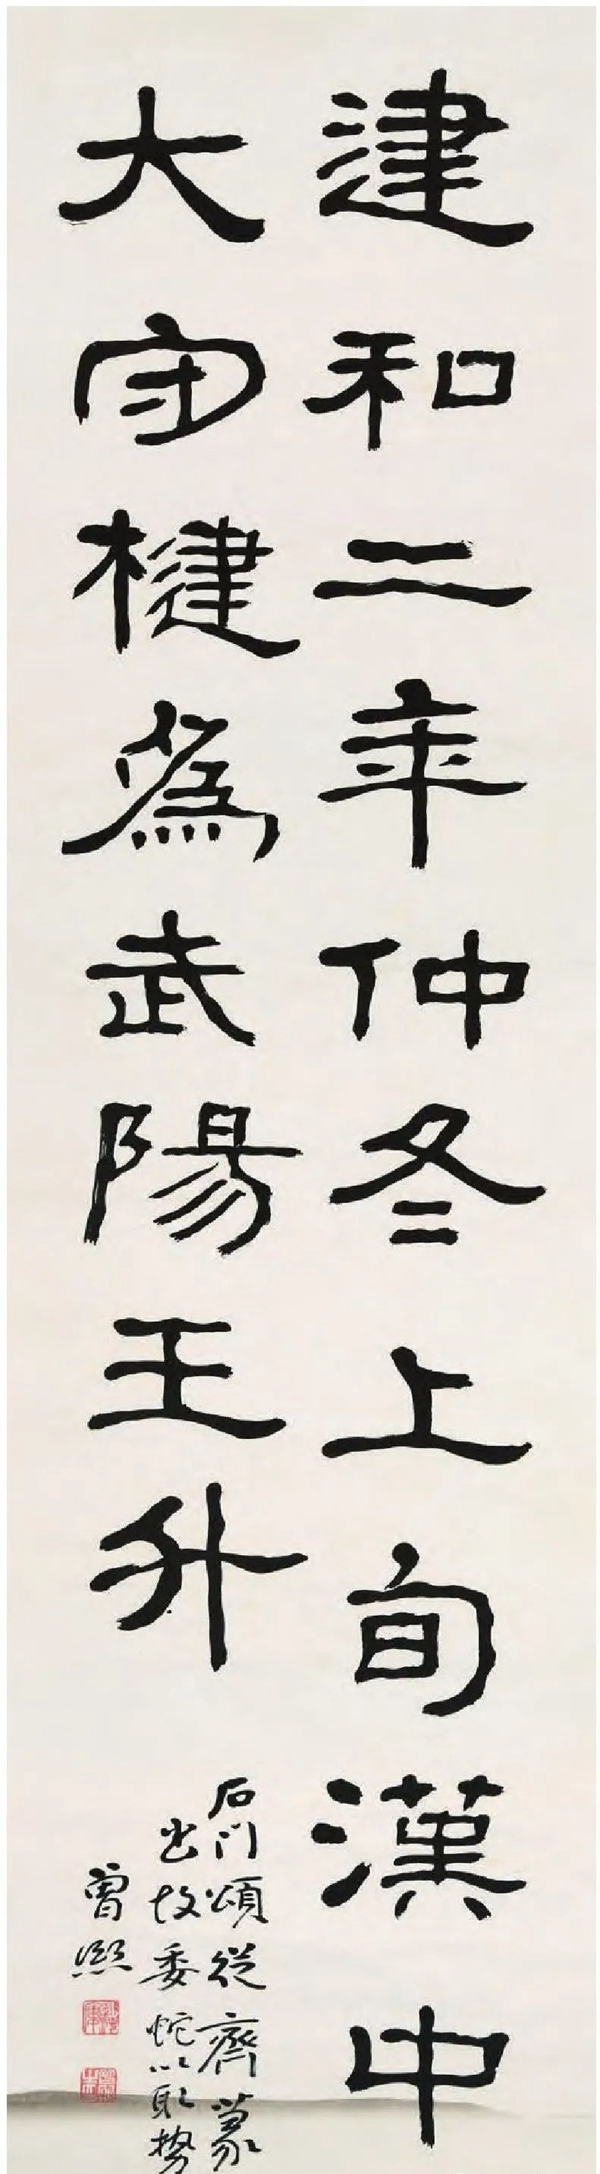 建和二年仲冬上旬漢中
大守楗為武陽王升
石門頌從齊篆
出故委蛇以取勢
曾熙